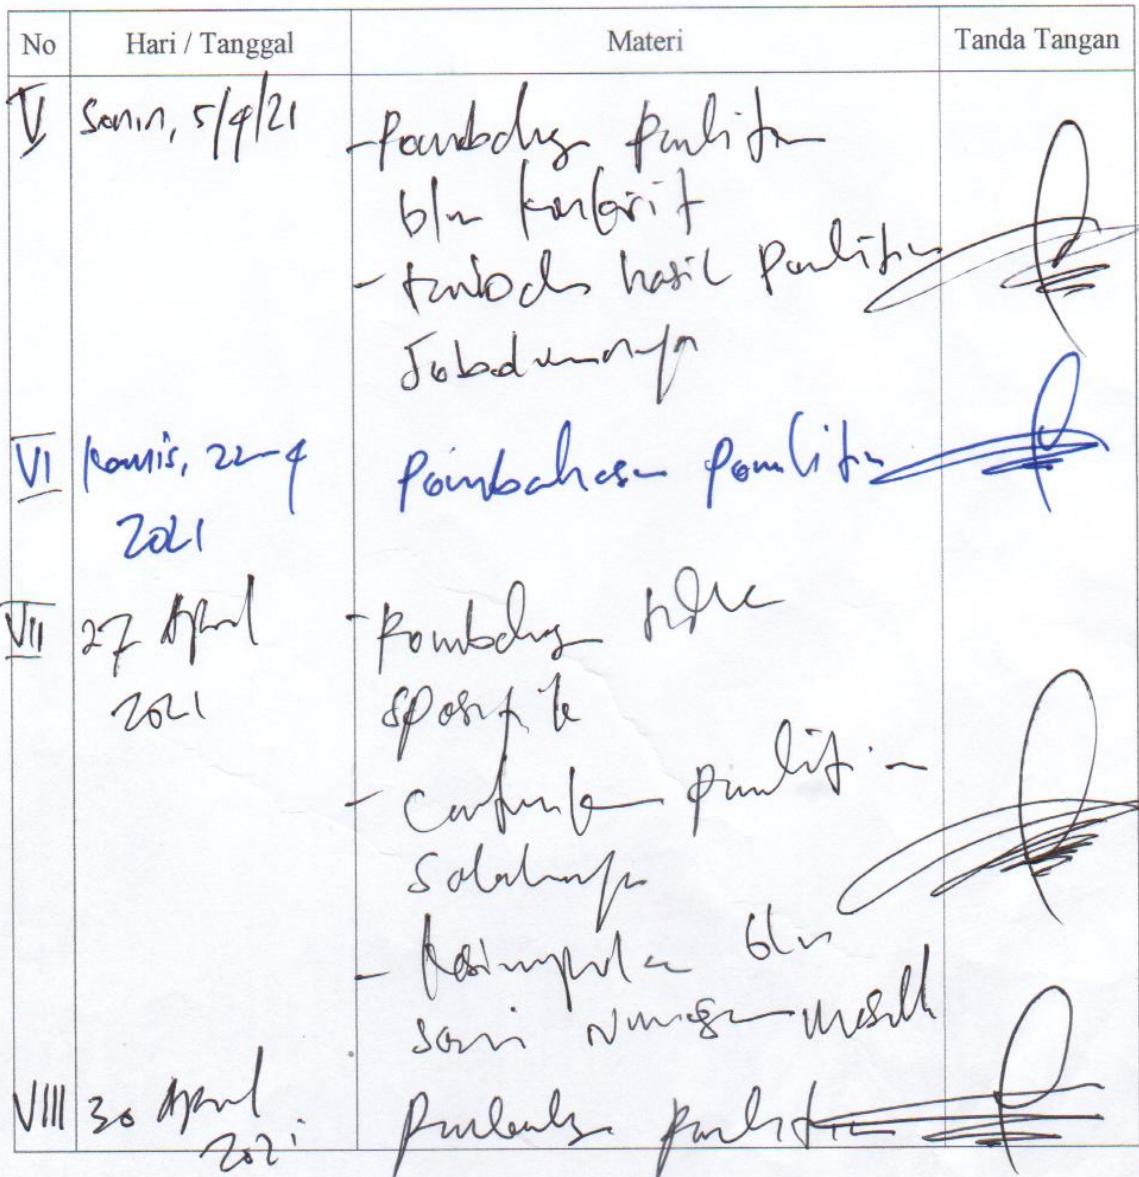 No Hari / Tanggal Materi Tanda Tangan
V Senin, 5/4/21 - Pembahasan Penelitian
bln konkrit
- hasil Penelitian
Sebelumnya
VI Kamis, 22-4 Pembahasan Penelitian
2021
VII 27 April - Pembahasan tidk
2021 spesifik
- Cantumkan penelitian
Sebelumnya
- Kesimpulan bln
sesuai rumusan maslh
VIII 30 April Pembahasan penelitian
2021